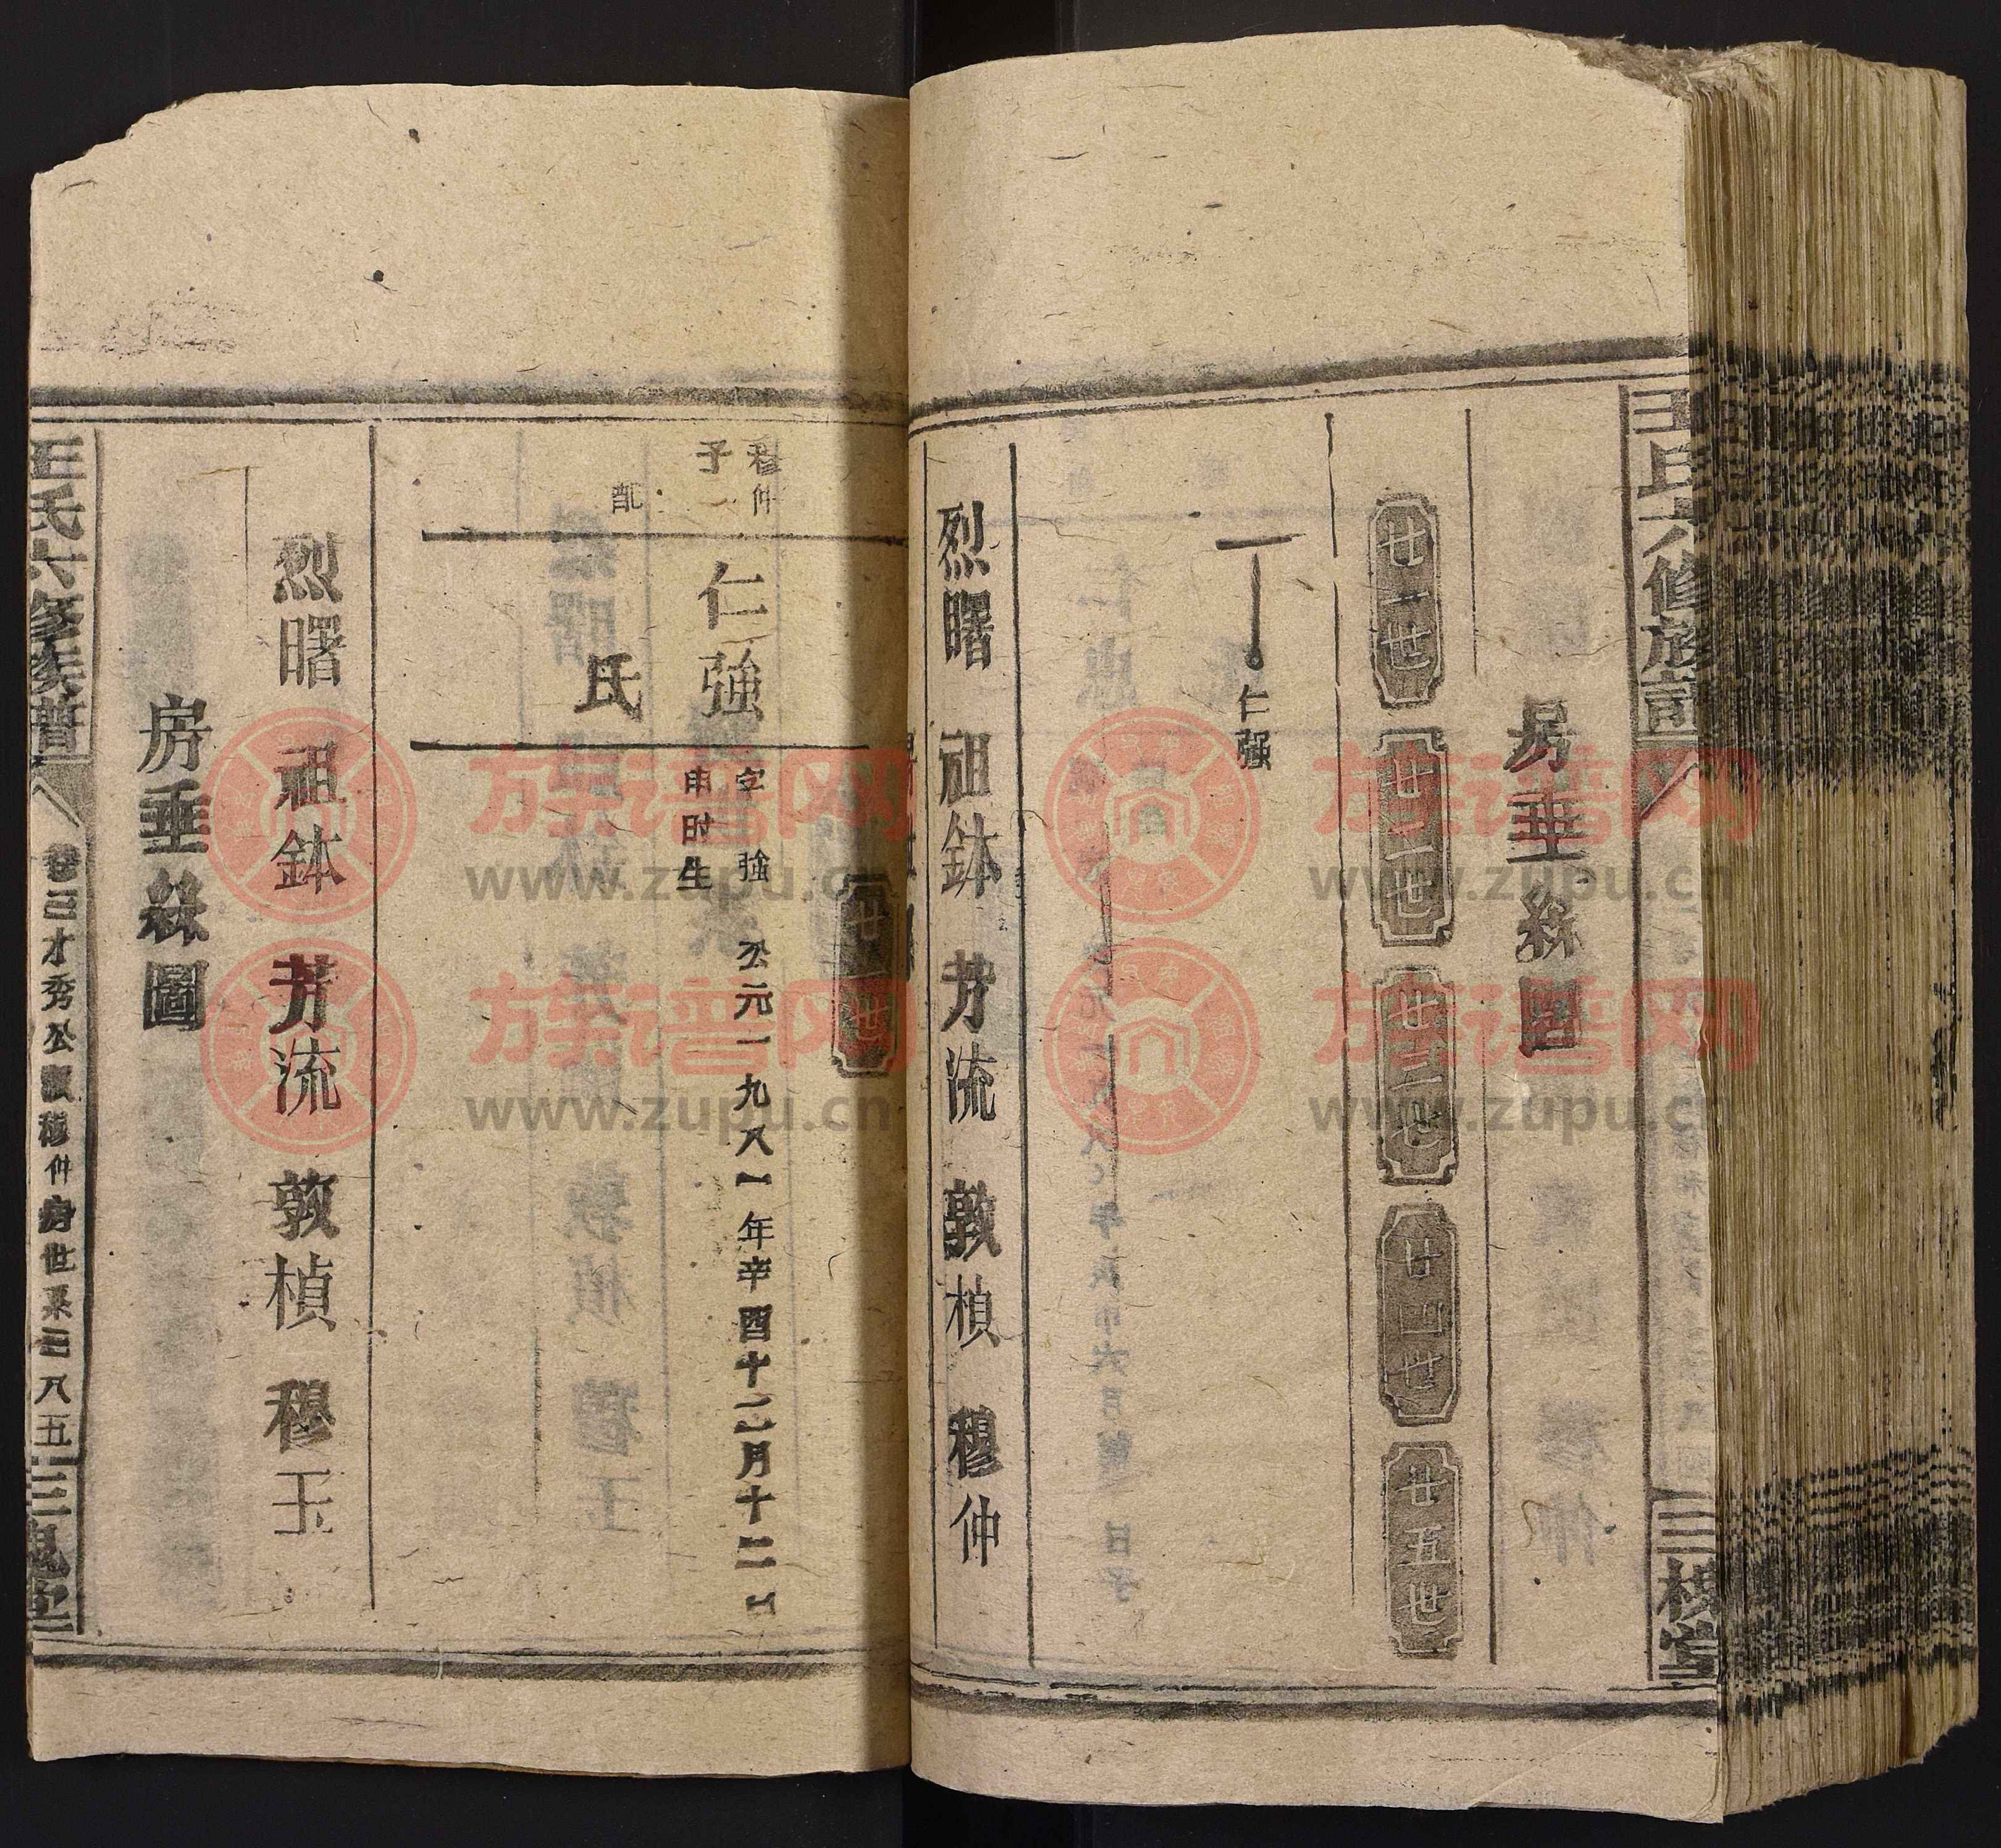 王氏六修族譜
三槐堂
房垂絲圖
廿一世
廿二世
廿三世
廿四世
廿五世
仁强
烈曙 祖鉢 芳流 敦楨 穆仲
廿一世
穆仲
子一
仁強
字強 公元一九八一年辛酉十二月十二日
申时生
配
氏
烈曙 祖鉢 芳流 敦楨 穆玉
房垂絲圖
王氏六修族譜
卷三才秀公派穆仲房世系三八五
三槐堂
族谱网
www.zupu.cn
族谱网
www.zupu.cn
族谱网
www.zupu.cn
族谱网
www.zupu.cn